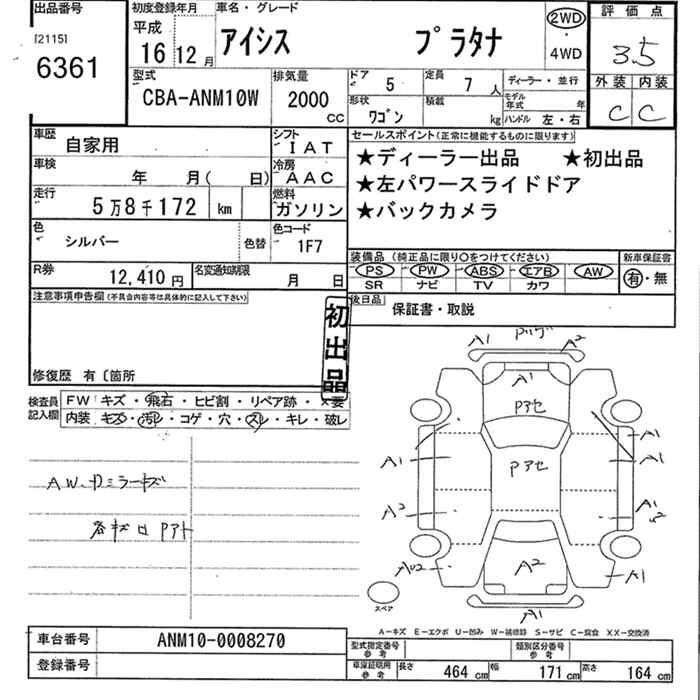 出品番号
[2115]
6361
初度登録年月
平成
16 12 月
車名・グレード
アイシス プラタナ
2WD
・
4WD
評価点
3.5
外装 内装
C C
型式
CBA-ANM10W
排気量
2000 CC
ドア 5
定員 7 人
形状 ワゴン
積載 kg
ディーラー・並行
モデル年式 年
ハンドル 左・右
車歴 自家用
シフト IAT
車検 年 月( 日)
冷房 AAC
走行 5万8千172 km
燃料 ガソリン
色 シルバー
色替
色コード 1F7
R券 12,410 円
名変通知期限 月 日
セールスポイント(正常に機能するものに限ります)
★ディーラー出品 ★初出品
★左パワースライドドア
★バックカメラ
装備品 (純正品に限り〇をつけてください)
PS PW ABS エアB AW
SR ナビ TV カワ
新車保証書
有・無
後日品
保証書・取説
注意事項申告欄(不具合内容等は具体的に記入して下さい)
初出品
修復歴 有〔箇所
検査員記入欄
FW キズ・飛石・ヒビ割・リペア跡・×要
内装 キズ・汚レ・コゲ・穴・スレ・キレ・破レ
AW、Dミラーキズ
各キズ ロ Pアト
A1 A2
A1
Pアセ
Pアセ
A1
A1
A1
A2
A1
A2
A1
A1
スペア
A-キズ E-エクボ U-凹み W-補修跡 S-サビ C-腐食 XX-交換済
車台番号 ANM10-0008270
登録番号
型式指定番号 参考
類別区分番号 参考
車庫証明用 参考
長さ 464 cm
幅 171 cm
高さ 164 cm